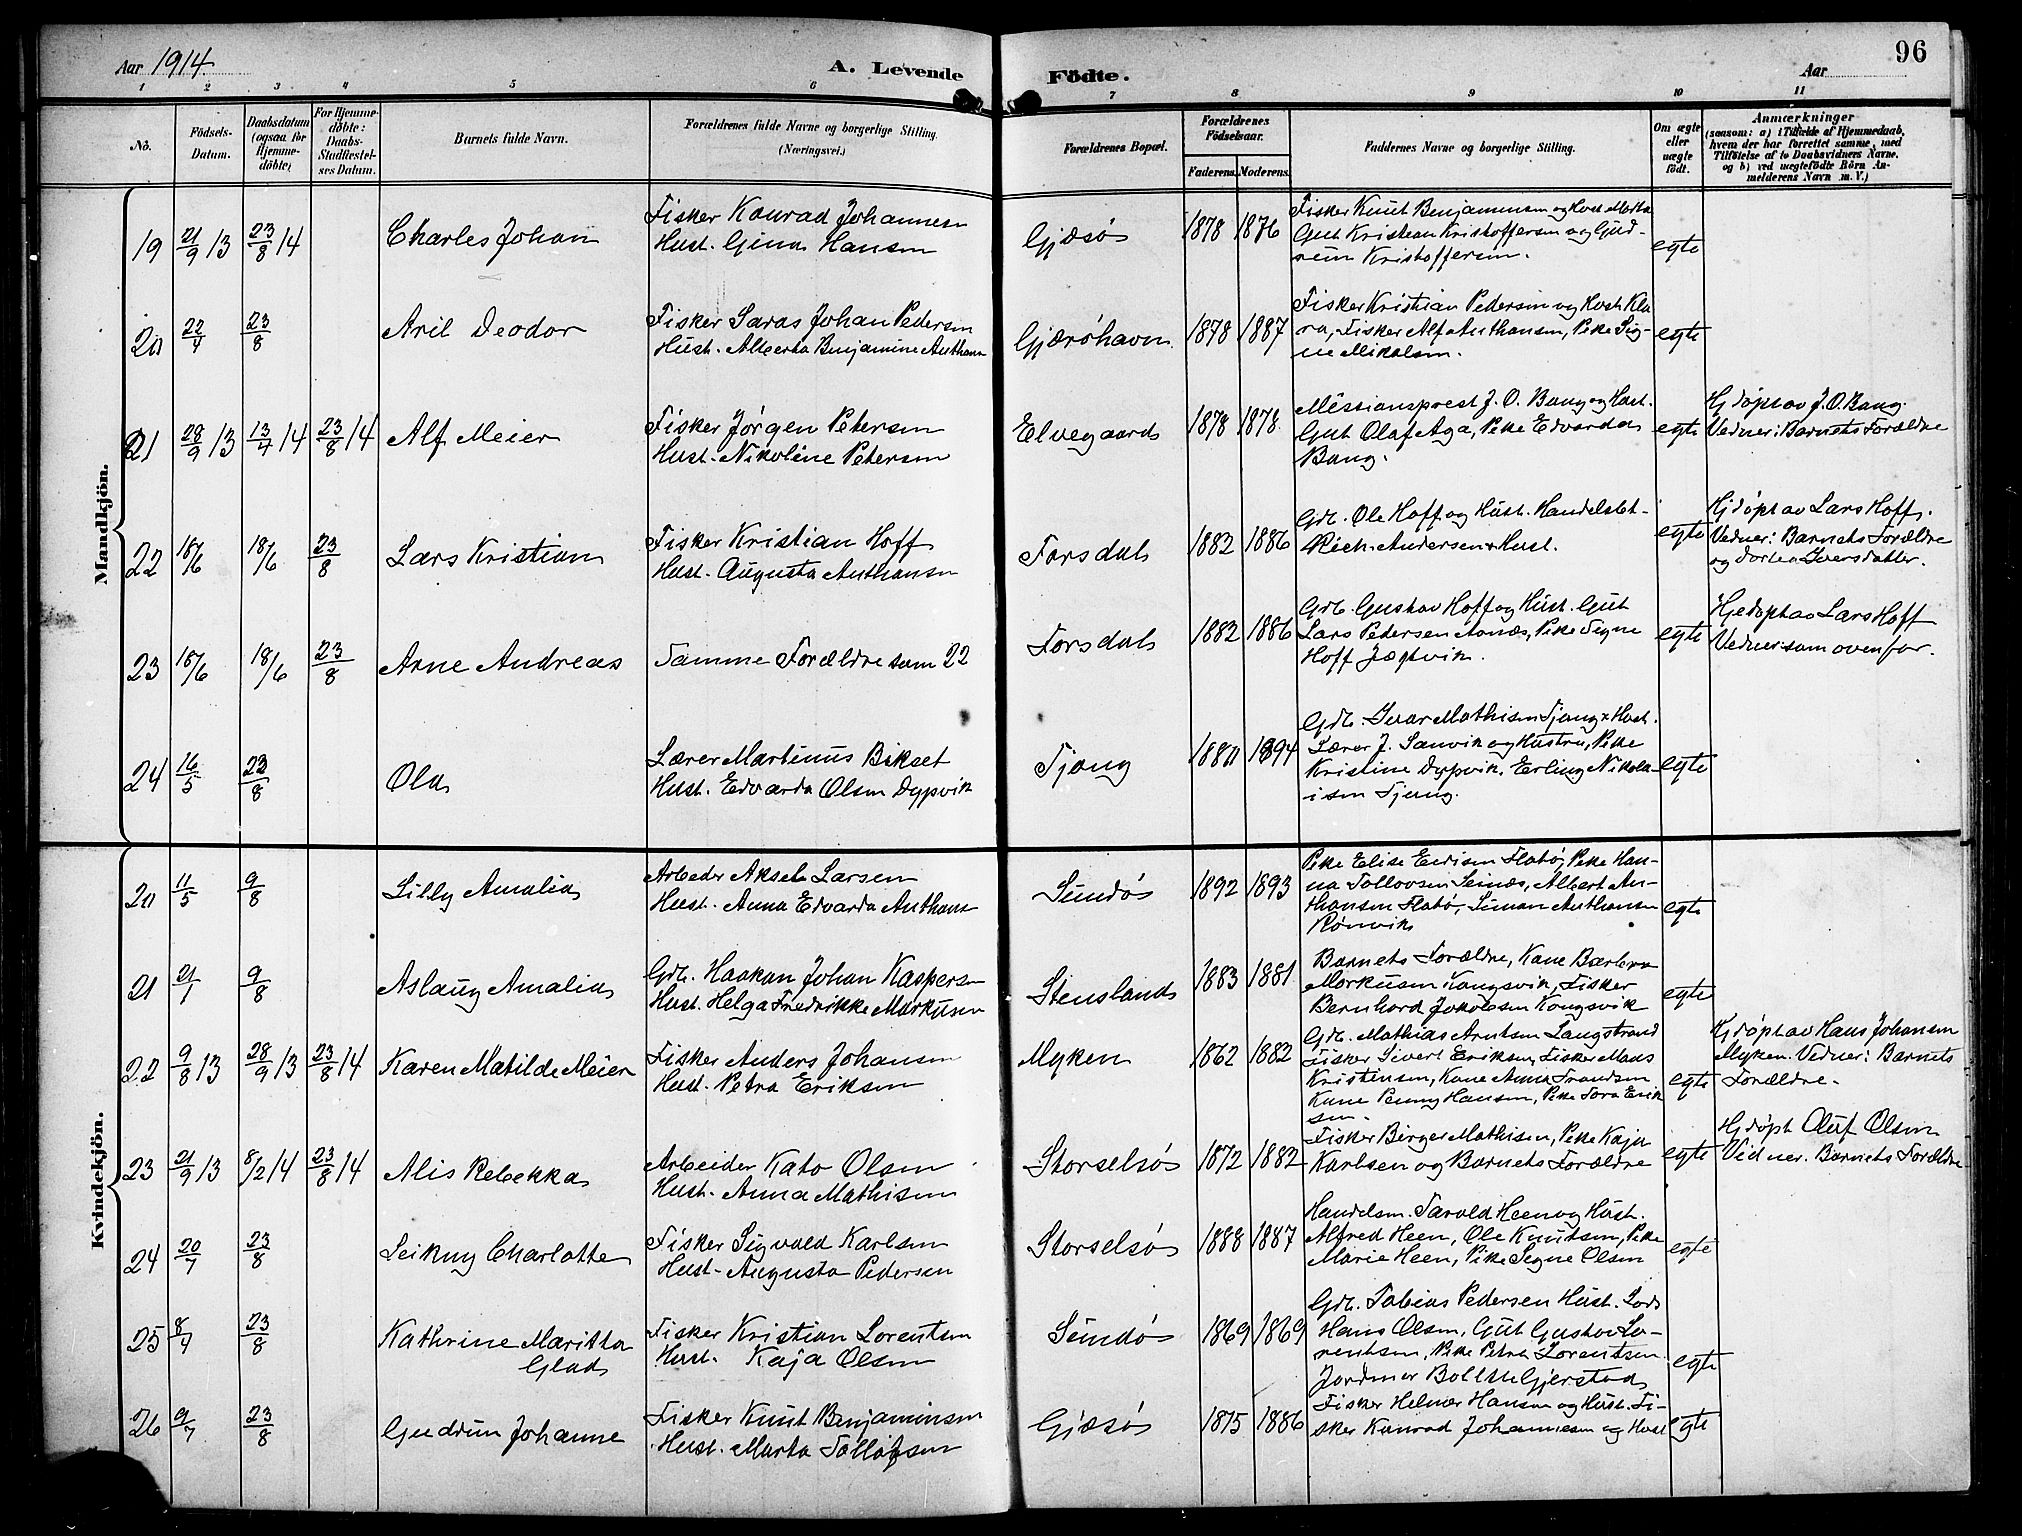 Aar 1914.
A. Levende
Födte.
Aar
96
1 2 3 4 5 6 7 8 9 10 11
No.
Födsels-
Datum.
Daabsdatum
(ogsaa for
Hjemme-
döbte)
For Hjemme-
döbte:
Daabs-
Stadfæstel-
ses Datum.
Barnets fulde Navn.
Forældrenes fulde Navne og borgerlige Stilling.
(Næringsvei.)
Forældrenes Bopæl.
Forældrenes
Födselsaar.
Faderens. Moderens.
Faddernes Navne og borgerlige Stilling.
Om ægte
eller
uægte
födt.
Anmærkninger
(saasom: a) i Tilfælde af Hjemmedaab,
hvem der har forrettet samme, med
Tilföielse af to Daabsvidners Navne.
og b) ved uægtefödte Börn An-
melderens Navn m. V.)
Mandkjön.
19 21/9 13 23/8 14 Charles Johan
Fisker Konrad Johannesen
Hust. Gina Hansen
Gjæsø 1878 1876
Fisker Knut Benjaminsen og Hust Marta
Gut Kristian Kristoffersen og Gud-
run Kristoffersen.
egte
20 22/4 23/8 Aril Deodor
Fisker Saras Johan Pedersen
Hust. Alberta Benjamine Anthans
Gjærøhavn 1878 1887
Fisker Kristian Pedersen og Hust Kla
ra, Fisker Alf Anthansen, Pike Sig-
ne Mikalsen.
egte
21 28/9 13 13/4 14 23/8 14 Alf Meier
Fisker Jörgen Petersen
Hust. Nikoline Petersen
Elvegaard 1878 1878
Missionsprest J. O. Bang og Hust.
Gut Olaf Aga, Pike Edvarda
Bang.
egte
Hjdöpt av J. O. Bang.
Vidner: Barnets Forældre
22 18/6 18/6 23/8 Lars Kristian
Fisker Kristian Hoff
Hust. Augusta Anthonsen
Forsdal 1882 1886
Gdb. Ole Hoff og Hust. Handelsbet-
Rich. Andersen + Hust.
egte
Hjdöpt av Lars Hoff.
Vidner: Barnets Forældre
og Dortea Iversdatter.
23 18/6 18/6 23/8 Arne Andreas
Samme Forældre som 22
Forsdal 1882 1886
Gdb. Gustav Hoff og Hust. Gut
Lars Pedersen Asnæs, Pike Signe
Hoff Jægtvik.
egte
Hjedöpt av Lars Hoff
Vidner som ovenfor.
24 16/5 23/8 Ola
Lærer Martinus Bikset
Hust. Edvarda Olsen Dypvik
Tjong 1880 1894
Gdb. Ivar Mathisen Tjong + Hust.
Lærer J. Sanvik og Hustru, Pike
Kristine Dypvik, Erling Nikola-
isen Tjong.
egte
Kvindekjön.
20 11/5 9/8 Lilly Amalia
Arbeder Aksel Larsen
Hust. Anna Edvarda Anthons
Sundø 1892 1893
Pike Elise Flatø, Pike Han-
na Tollovsen Seinæs, Albert An-
thansen Flatø, Simon Anthansen
Rønvik
egte
21 21/1 9/8 Aslaug Amalia
Gdb. Haakon Johan Kaspersen
Hust. Helga Fredrikke Markusen
Stensland 1883 1881
Barnets Forældre, Kone Barbra
Markusen Kongsvik, Fisker
Bernhard Jakobsen Kongsvik
egte
22 9/8 13 28/9 13 23/8 14 Karen Matilde Meier
Fisker Anders Johansen
Hust. Petra Eriksen
Myken 1862 1882
Gdb. Mathias Arntsen Langstrand
Fisker Sivert Eriksen, Fisker Mons
Kristensen, Kone Anna Trondsen
Kone Penny Hansen, Pike Tora Erik
sen.
egte
Hjdöpt av Hans Johansen
Myken. Vidner: Barnets
Forældre.
23 21/9 13 8/2 14 23/8 14 Alis Rebekka
Arbeider Kato Olsen
Hust. Anna Mathisen
Storselsö 1872 1882
Fisker Birger Mathisen, Pike Kaja
Karlsen og Barnets Forældre
egte
Hjdöpt Oluf Olsen
Vidner. Barnets Forældre
24 20/7 23/8 Leikny Charlotte
Fisker Sigvald Karlsen
Hust. Augusta Pedersen
Storselsö 1888 1887
Handelsm. Harold Heen og Hust.
Alfred Heen, Ole Knudsen, Pike
Marie Heen, Pike Signe Olsen
egte
25 8/4 23/8 Kathrine Maritta
Glad
Fisker Kristian Lorentsen
Hust. Kaja Olsen
Sundø 1869 1869
Gdb. Tobias Pedersen Hust. Lods
Hans Olsen, Gut Gustav Lo-
rentsen, Pike Petra Lorentsen
Jordmor Gjerstad
egte
26 9/7 23/8 Gudrun Johanne
Fisker Knut Benjaminsen
Hust. Marta Tollofsen
Gjæsø 1875 1886
Fisker Helmer Hansen og Hust. Fi-
sker Konrad Johannesen og Hust
egte